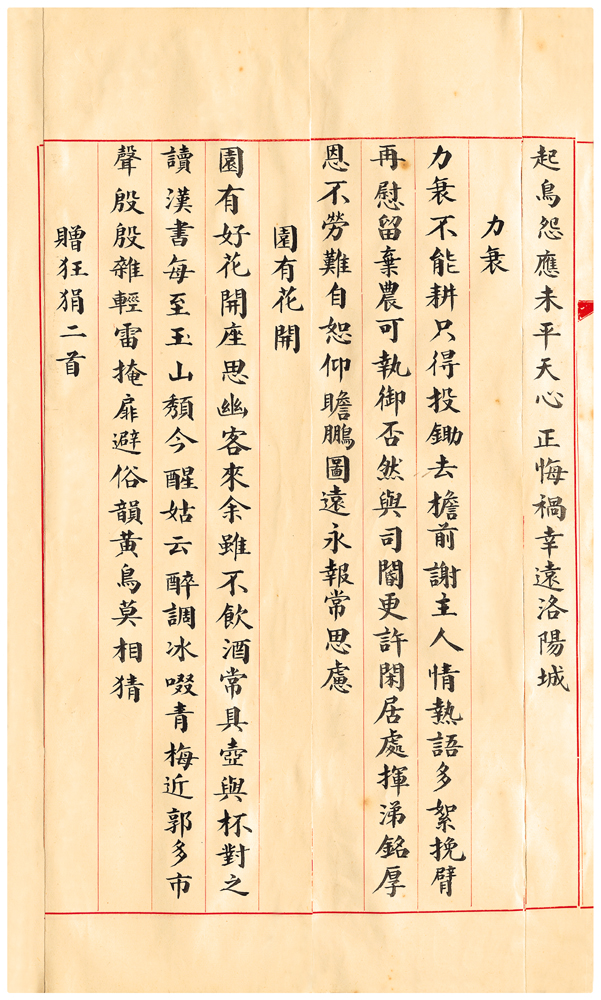 起鳥怨應未平天心正悔禍幸遠洛陽城
力衰
力衰不能耕只得投鋤去檐前謝主人情熱語多絮挽臂
再慰留棄農可執御否然與司閽更許閑居處揮涕銘厚
恩不勞難自恕仰瞻鵬圖遠永報常思慮
園有花開
園有好花開座思幽客來余雖不飲酒常具壺與杯對之
讀漢書每至玉山頹今醒姑云醉調冰啜青梅近郭多市
聲殷殷雜輕雷掩扉避俗韻黃鳥莫相猜
贈狂狷二首